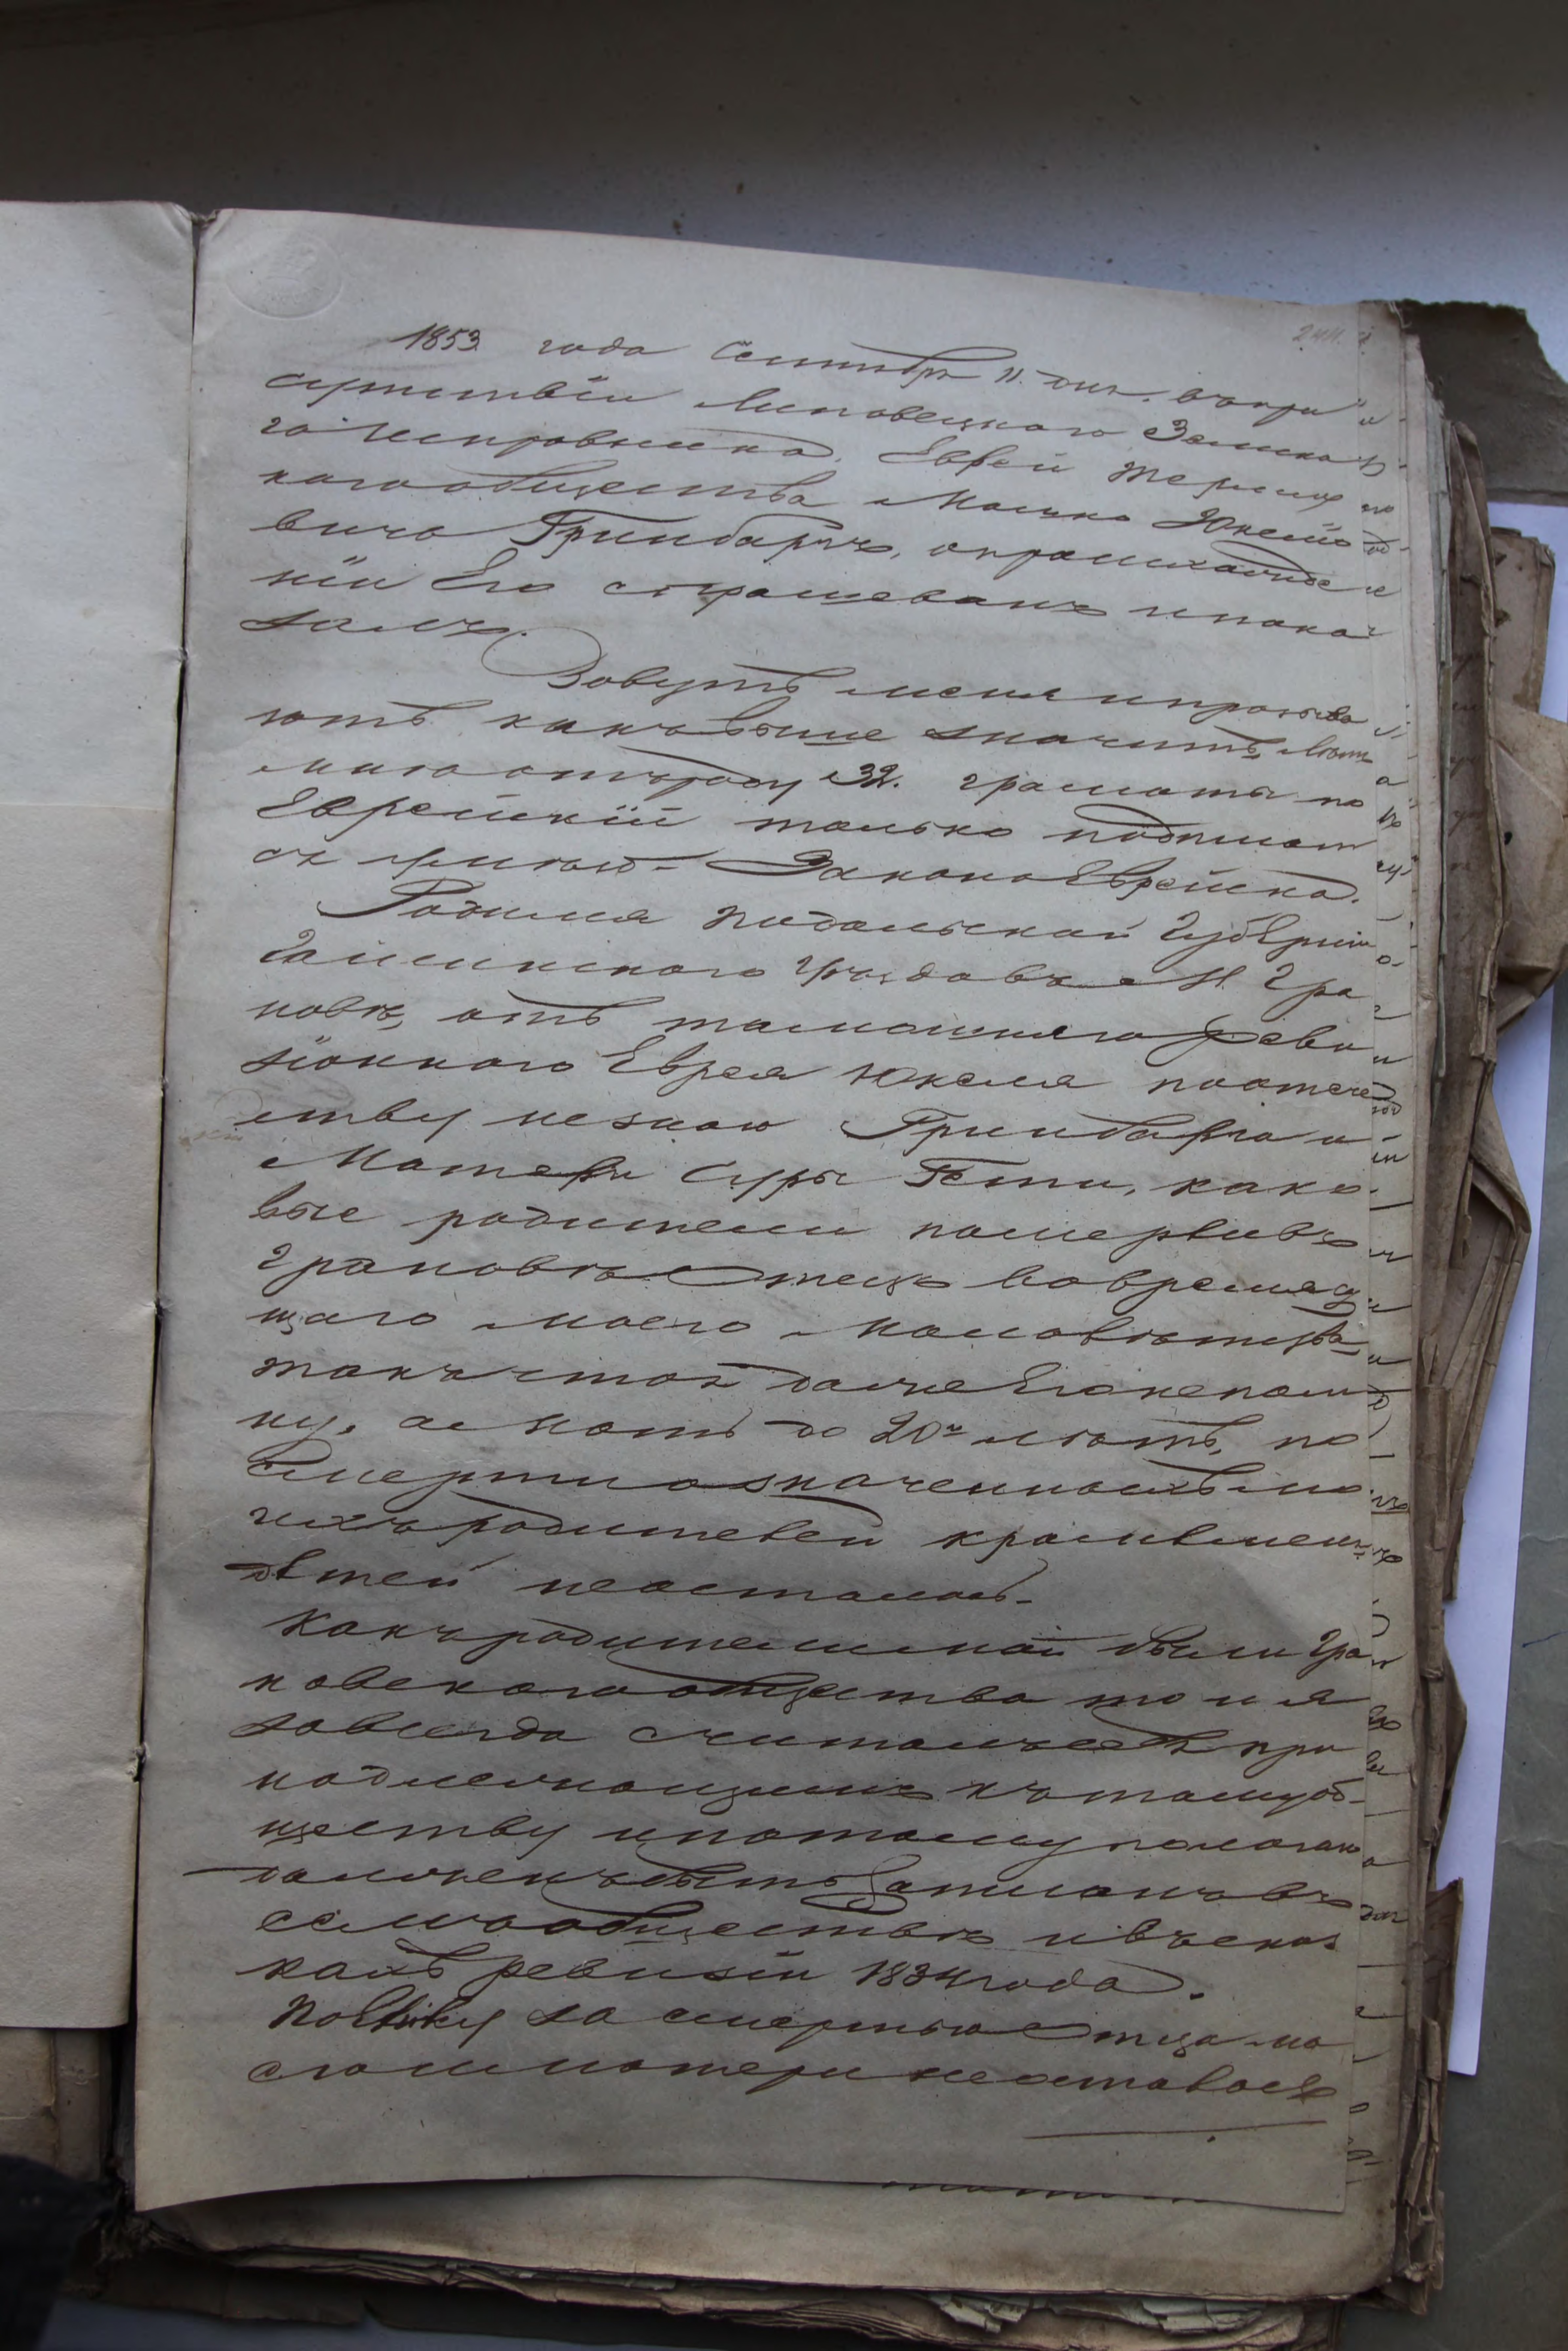 1853 года Сентября 11 дня. въ при
сутствіи Липовецкаго Земска
го Исправника, Еврей
кого общества Мошко Юкелio
вичъ Гринбаргъ,
ніи Его спрашеванъ и пока
залъ.
Зовутъ меня и прозыва
ютъ какъ выше значитъ, лѣтъ
мнѣ отъ роду 32. грамоты по
Еврейскій только подписат
ся умѣю Закона Еврейска.
Родился Подольской Губерніи
Гайсинскаго уѣзда въ М. Гра
новѣ, отъ тамошняго реви
зіоннаго Еврея Юкеля по отече
ству незнаю Гринбарга и
Матери Суры Пети, како
вые родители померли въ
Грановѣ Отецъ во время су
щаго моего малолѣтства,
такъ что я даже Его непом
ну, а Мать до 20ти лѣтъ, по
Смерти означенныхъ мо
ихъ родителей кромѣ меня
дѣтей неосталось.
Какъ родители мои были Гра
новскаго общества то и я
завсегда считалъ себя при
надлежащимъ къ тому об-
ществу и потому полагаю
долженъ быть записанъ въ
семъ обществѣ и въ сказ
кахъ ревизіи 1834 года.
Поелику за смертью Отца мо
его и матери неоставалось